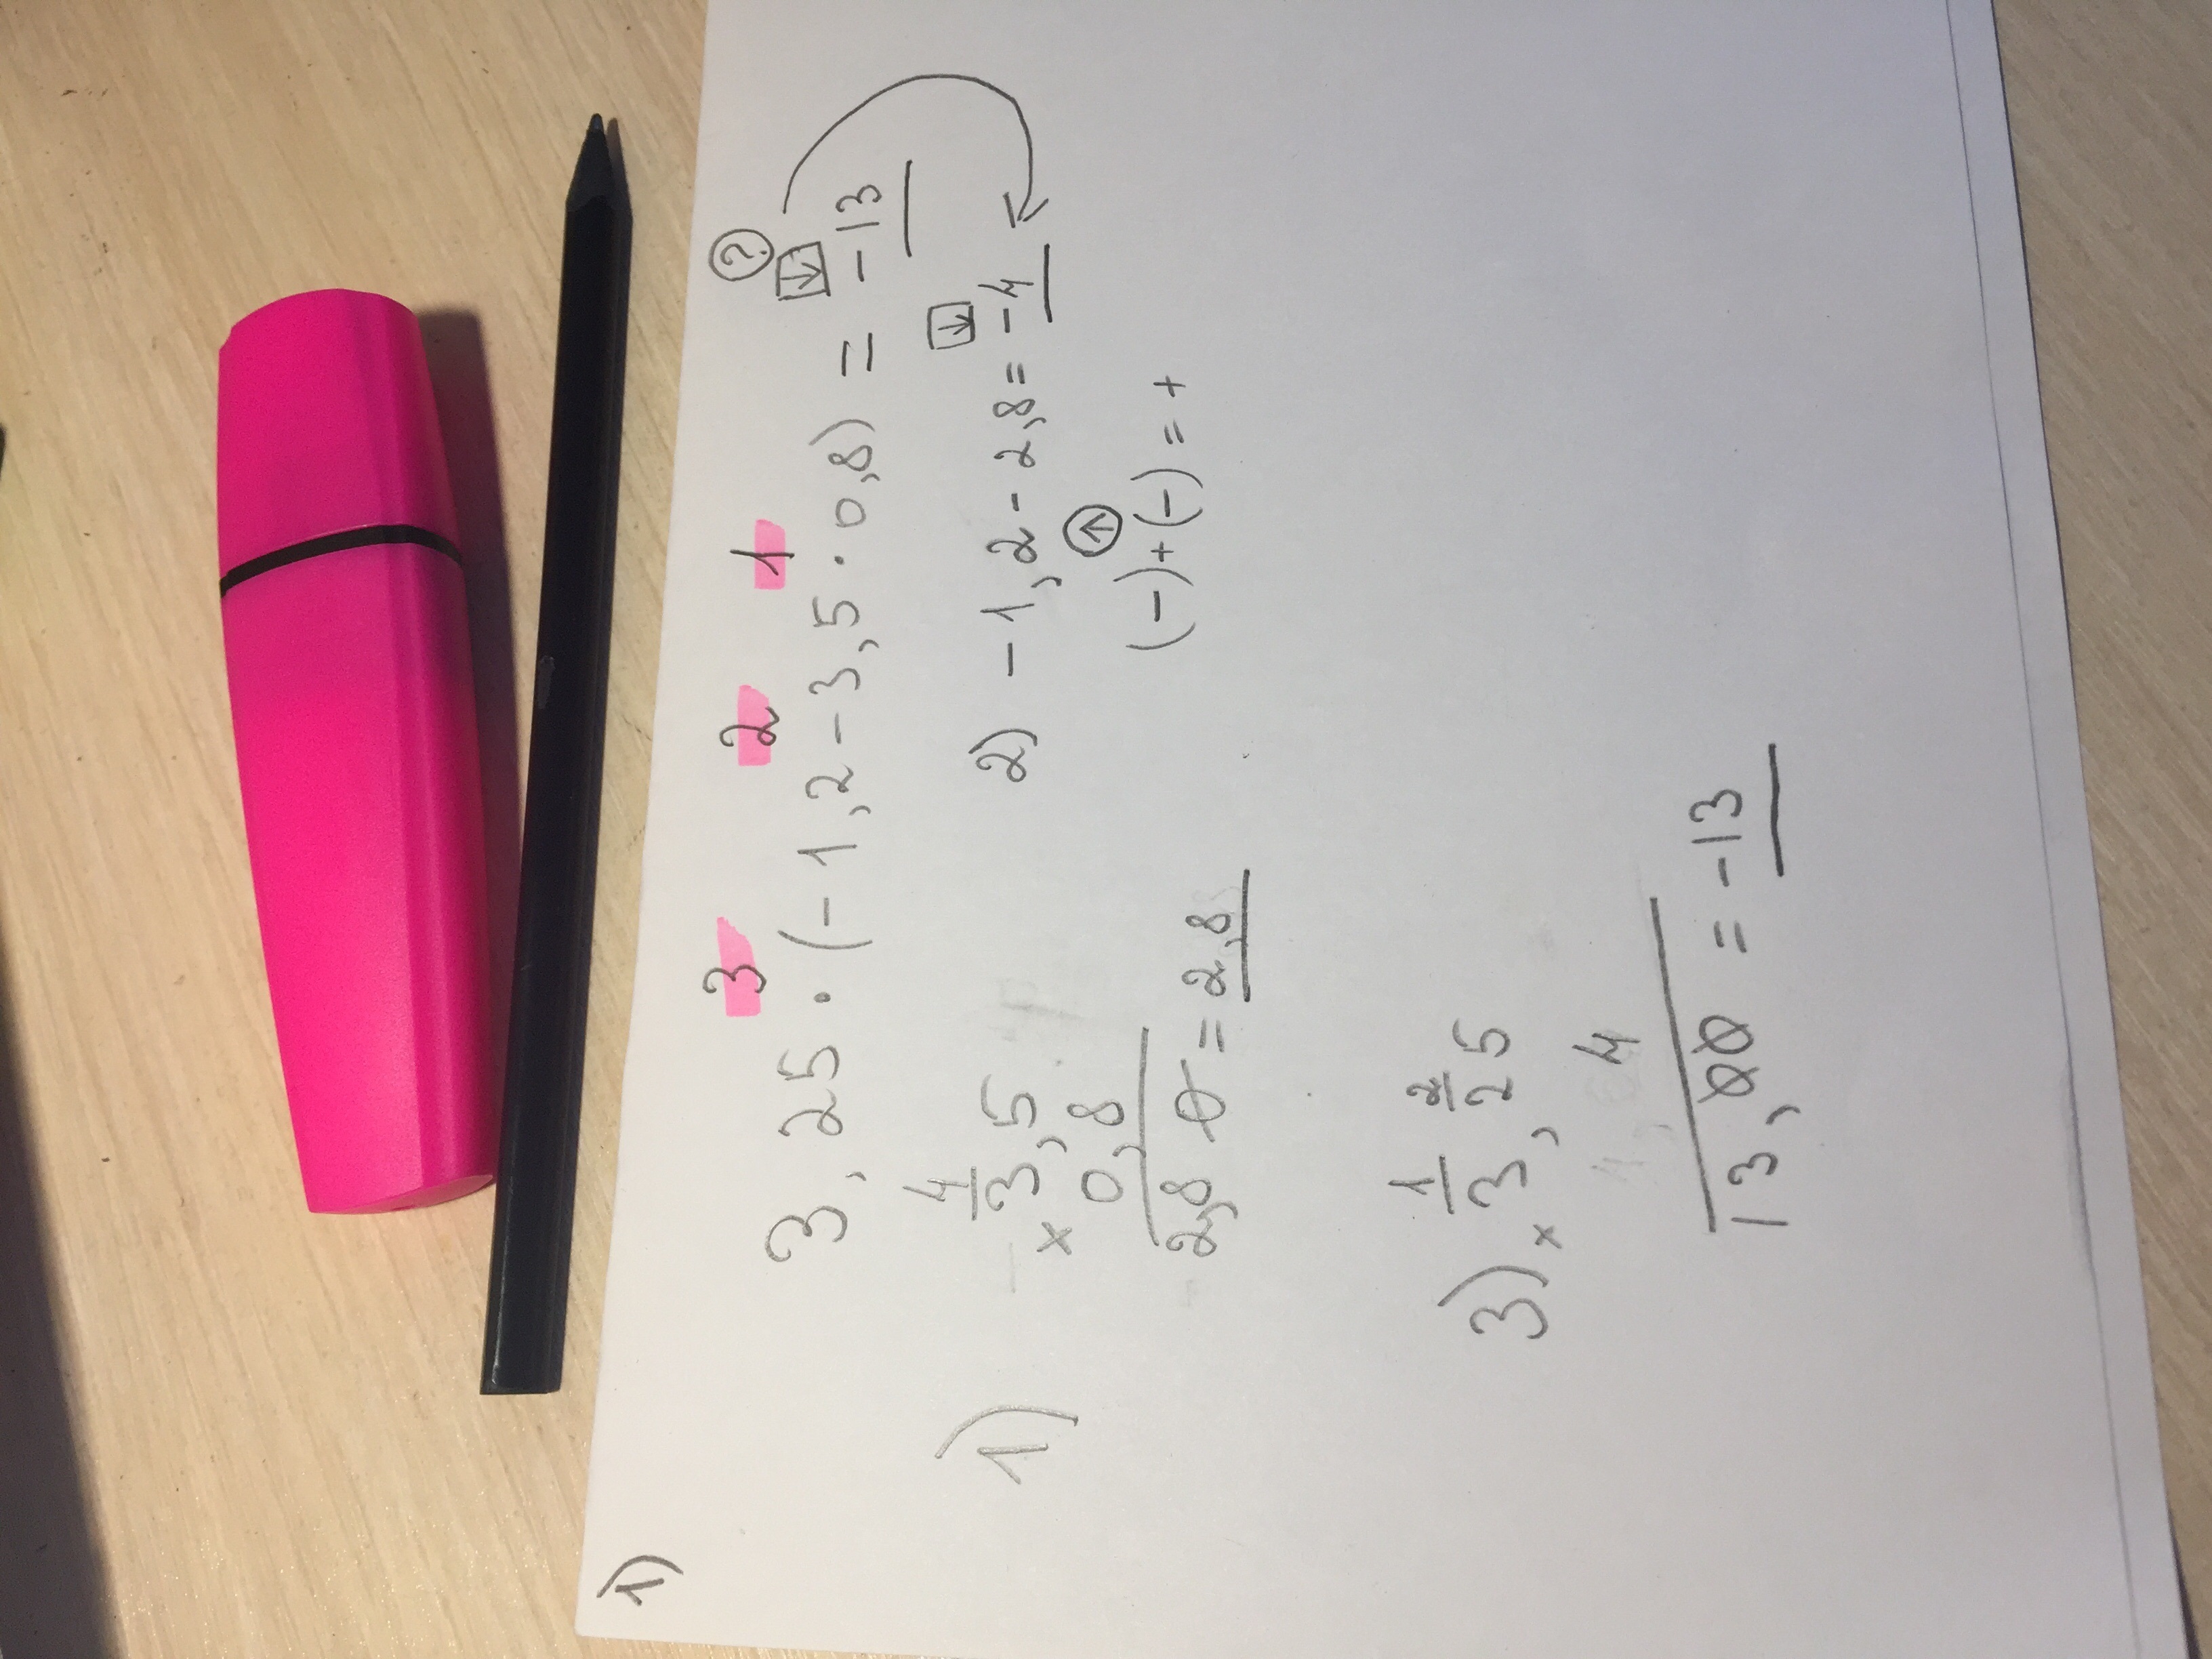 1)
3 2 1 ?
3,25 · (-1,2-3,5 · 0,8) = -13
1)
4
× 3,5
0,8
2,8 0 = 2,8
2) -1,2 - 2,8 = -4
(-)+(-) = +
3)
1 2
× 3,25
4
13,00 = -13